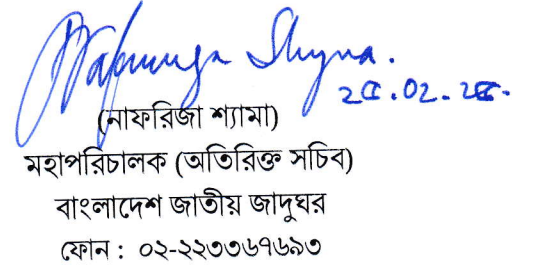 Nafriza Shyma.
২৫.০২.২৫.
(নাফরিজা শ্যামা)
মহাপরিচালক (অতিরিক্ত সচিব)
বাংলাদেশ জাতীয় জাদুঘর
ফোন : ০২-২২৩৩৬৭৬৯৩